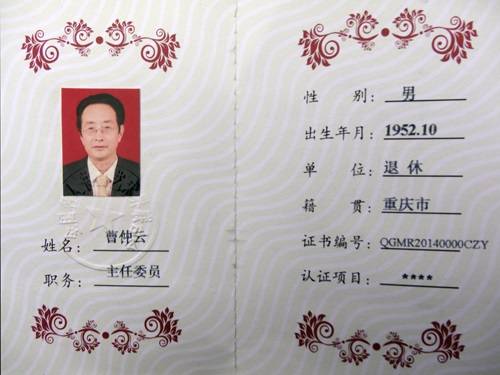 姓名：曹仲云
职务：主任委员
性 别：男
出生年月：1952.10
单 位：退 休
籍 贯：重庆市
证书编号：QGMR20140000CZY
认证项目：****